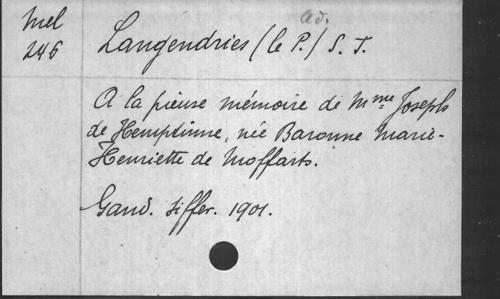 Mel
246
ad.
Langendries (le P.) S. J.
A la pieuse mémoire de Mme Joseph
de Hemptinne, née Baronne Marie-
Henriette de Moffarts.
Gand. Siffer. 1901.